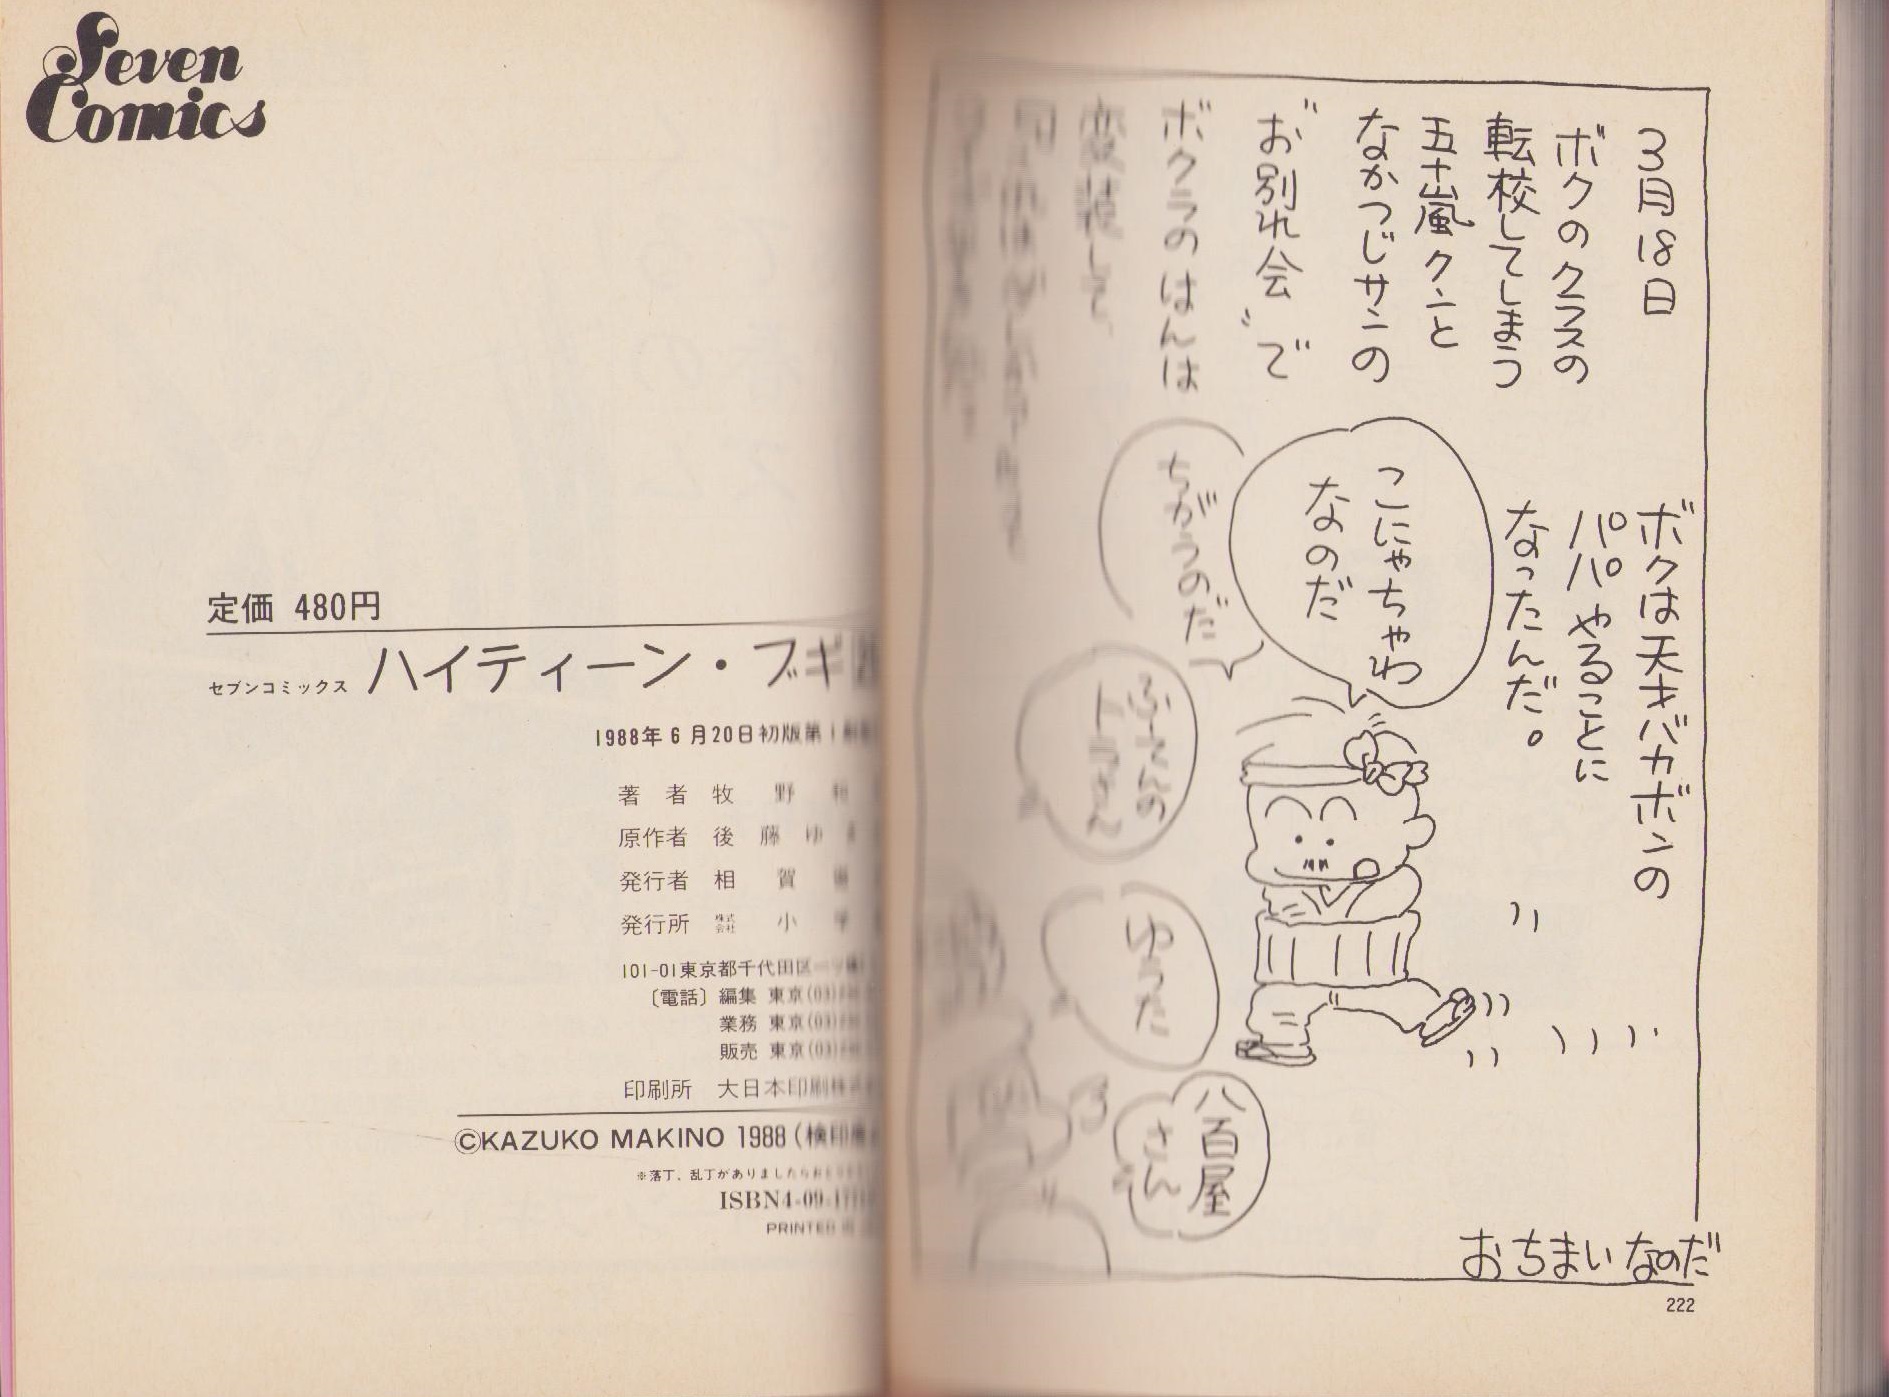 3月18日
ボクのクラスの
転校してしまう
五十嵐クンと
なかつじサンの
〝お別れ会〟で
ボクラのはんは
変装して
ボクは天才バカボンの
パパやることに
なったんだ。
こにゃちゃわ
なのだ
ちがうのだ
ふーてんの
トラさん
ゆうた
八百屋
さん
おちまいなのだ
222
Seven
Comics
定価 480円
セブンコミックス ハイティーン・ブギ
1988年6月20日初版第1刷
著者 牧野
原作者 後藤ゆ
発行者 相賀
発行所 株式会社 小学
101-01東京都千代田区一ツ橋
〔電話〕編集 東京(03)
業務 東京(03)
販売 東京(03)
印刷所 大日本印刷株式
©KAZUKO MAKINO 1988 (検印
※落丁、乱丁がありましたら
ISBN4-09-17
PRINTED IN